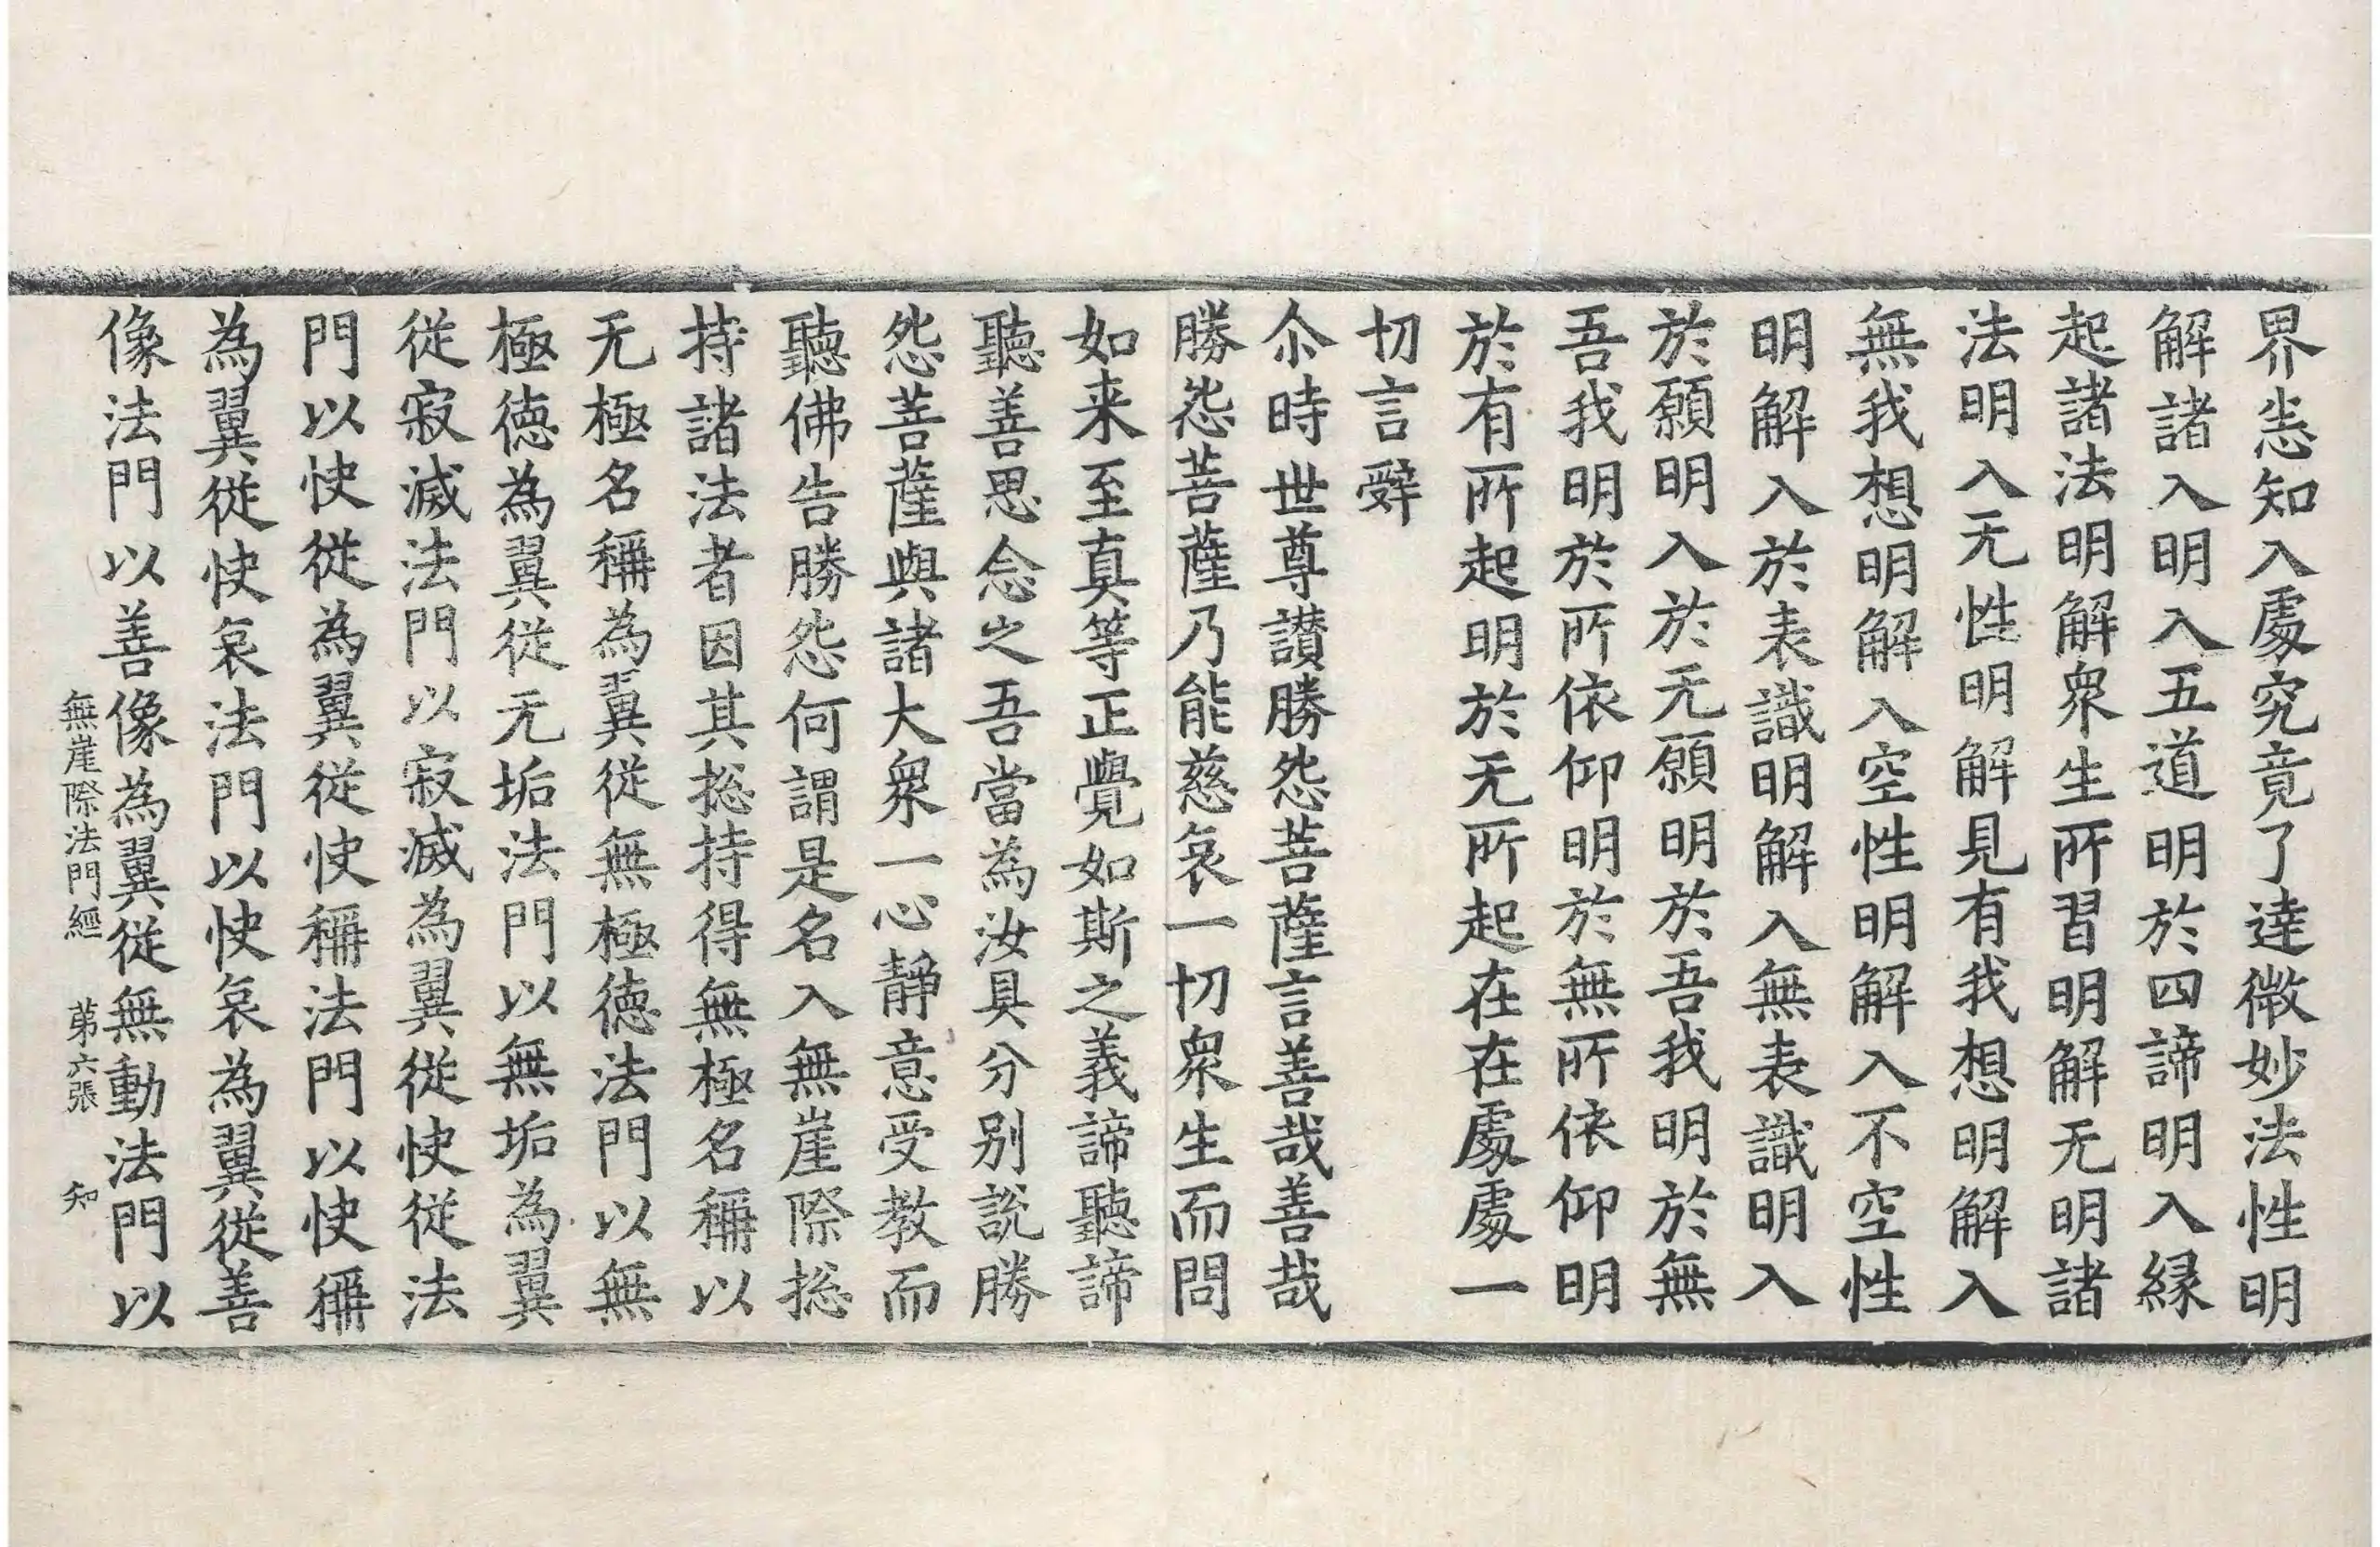 界恙知入處究竟了達微妙法性明
解諸入明入五道明於四諦明入緣
起諸法明解衆生所習明解无明諸
法明入无性明解見有我想明解入
無我想明解入空性明解入不空性
明解入於表識明解入無表識明入
於願明入於无願明於吾我明於無
吾我明於所依仰明於無所依仰明
於有所起明於无所起在在處處一
切言辝
尒時世尊讃勝怨菩薩言善哉善哉
勝怨菩薩乃能慈哀一切衆生而問
如来至真等正覺如斯之義諦聽諦
聽善思念之吾當為汝具分別說勝
怨菩薩與諸大衆一心靜意受教而
聽佛告勝怨何謂是名入無崖際揔
持諸法者因其揔持得無極名稱以
无極名稱為翼從無極德法門以無
極徳為翼從无垢法門以無垢為翼
従寂滅法門以寂滅為翼從快從法
門以快從為翼從快稱法門以快稱
為翼從快哀法門以快哀為翼從善
像法門以善像為翼從無動法門以
無崖際法門經 苐六張 知